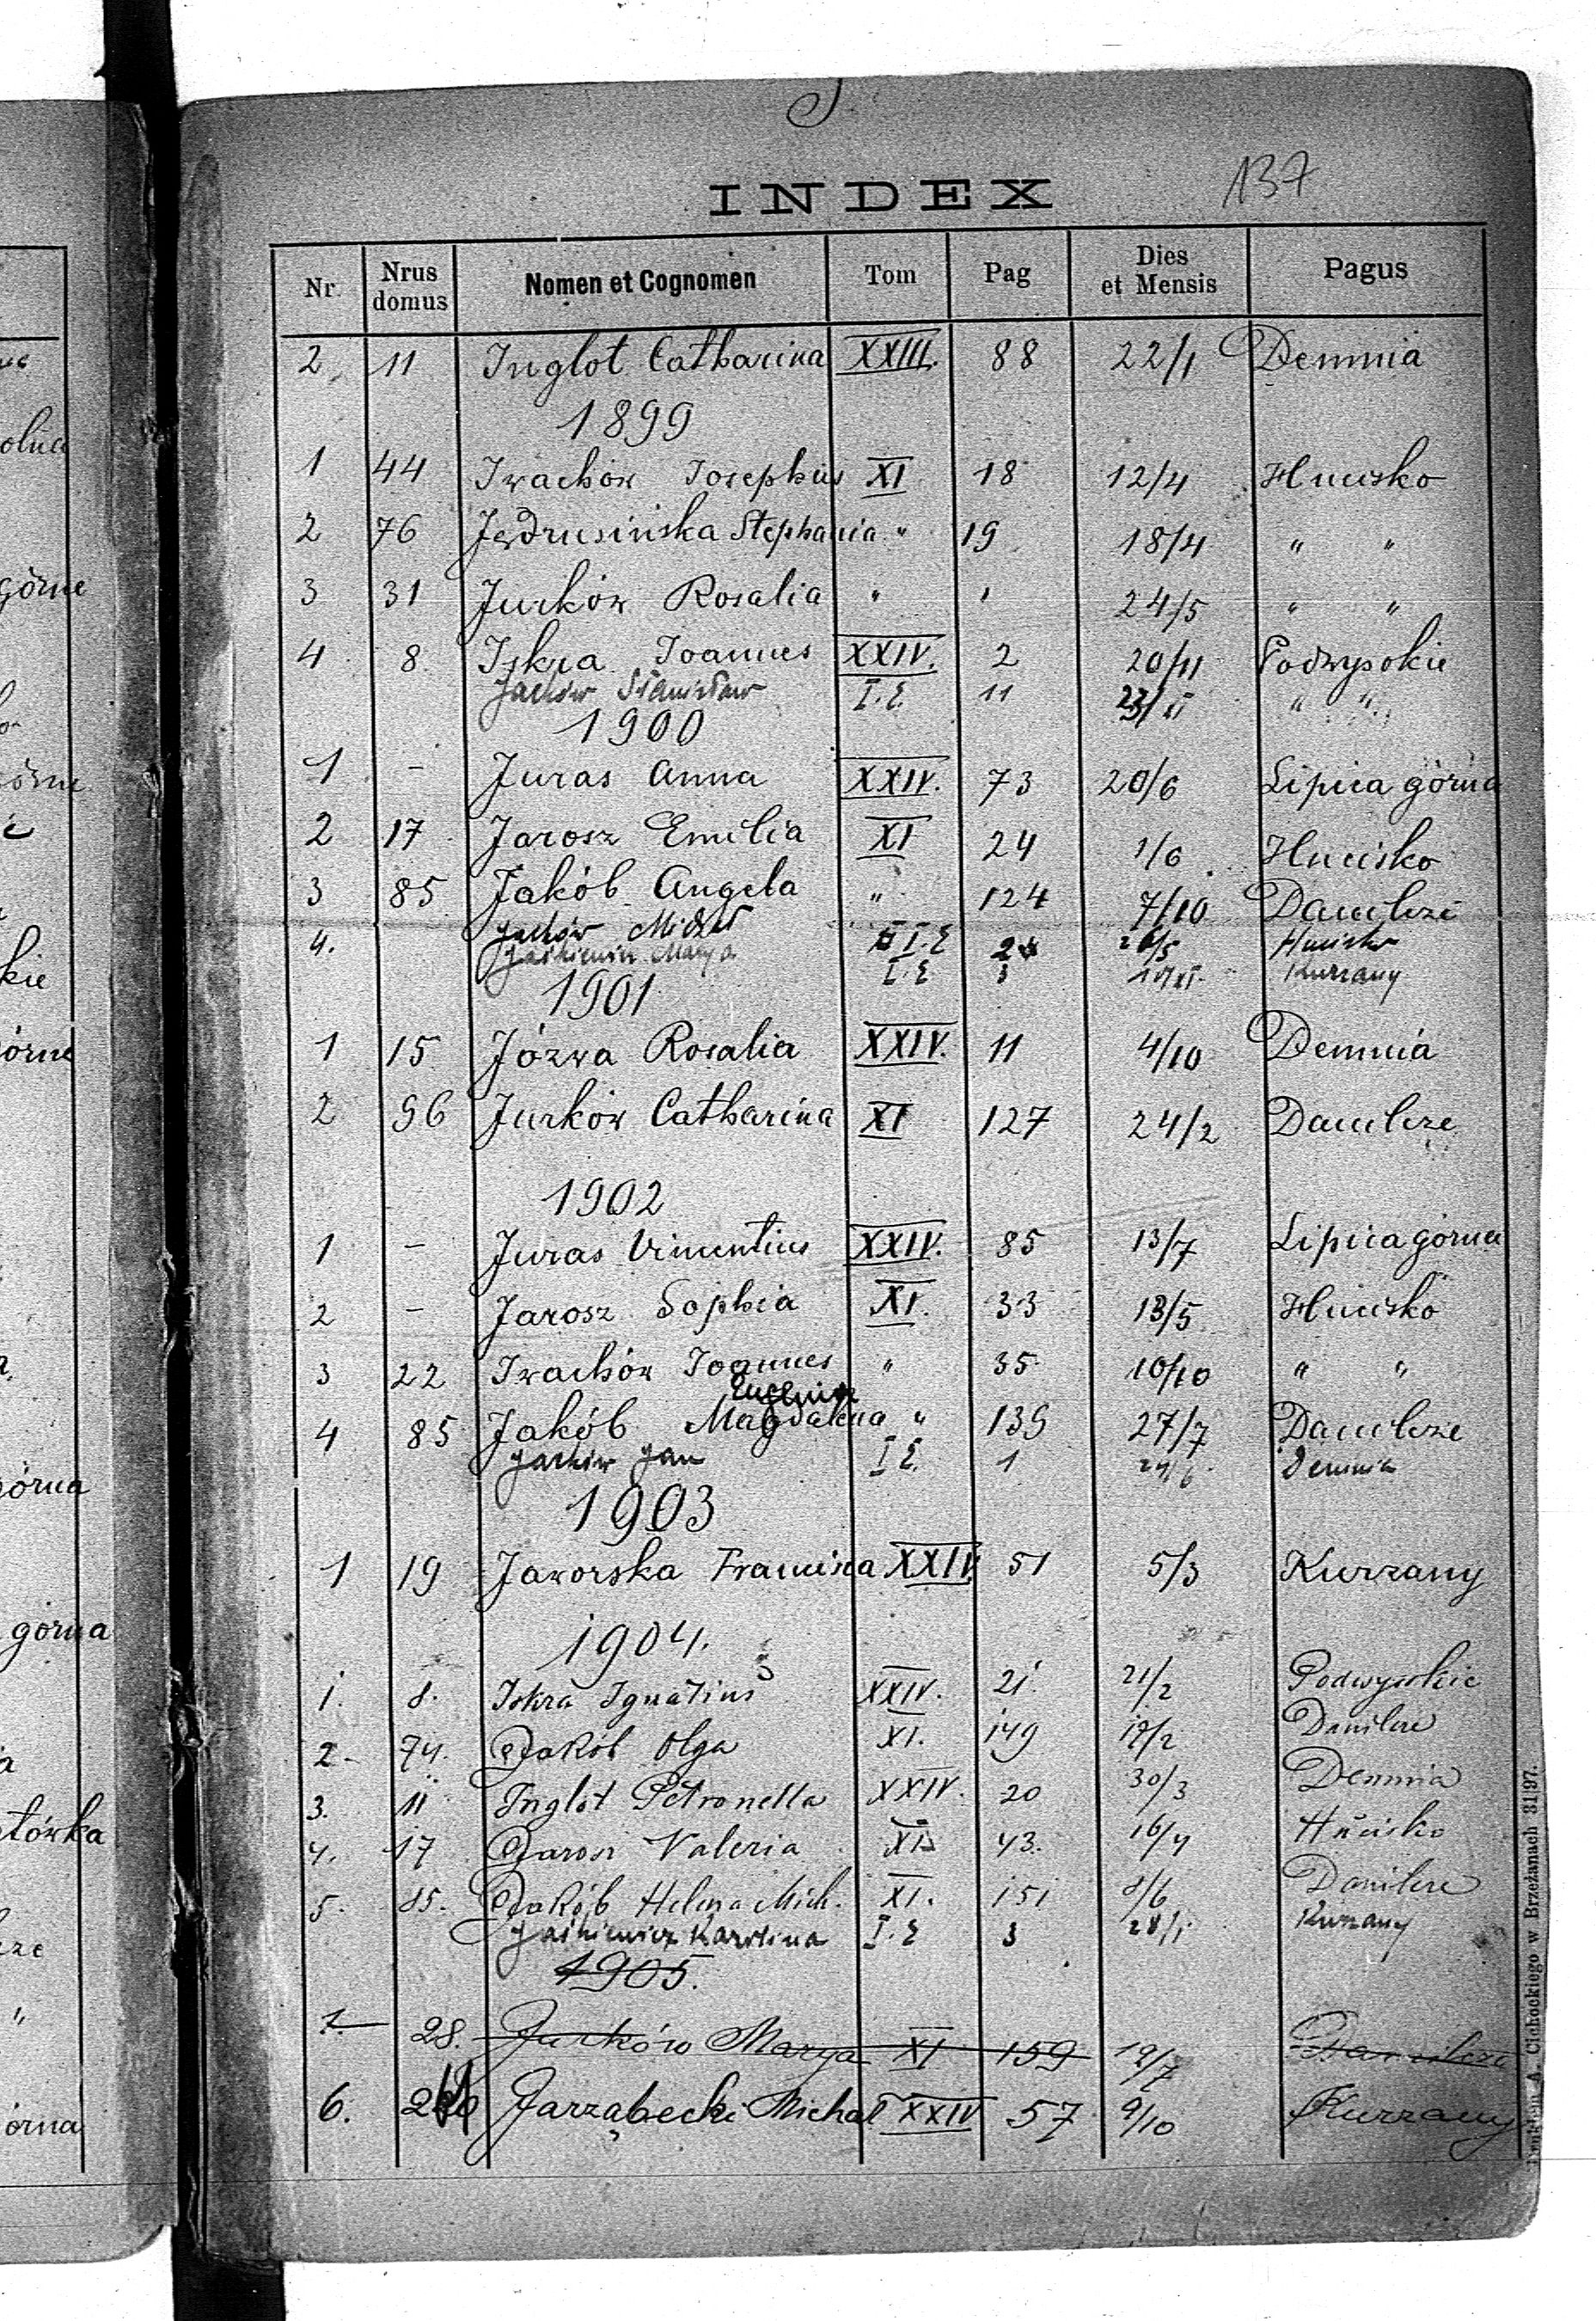 J.
137
INDEX
Nr. Nrus domus Nomen et Cognomen Tom Pag Dies et Mensis Pagus
2. 11 Inglot Catharina XXIII. 88 22/1 Demnia
1899
1 44 Iwachów Josephus XI 18 12/4 Hucisko
2 76 Jędrusińska Stephania " 19 18/4 " "
3 31 Jurków Rosalia " " 24/5 " "
4 8. Iskra Joannes XXIV. 2 20/11 Podwysokie
Jachów Stanisław I.E. 11 " "
1900
1 - Juras Anna XXIV. 73 20/6 Lipica górna
2 17 Jarosz Emilia XI 24 1/6 Hucisko
3 85 Jakób Angela " 124 7/10 Danilcze
4. Jachów Michał I.E Hucisko
Jaśkiewicz Marya I.E 3 Kurzany
1901
1 15 Józwa Rosalia XXIV. 11 4/10 Demnia
2 96 Jurków Catharina XI 127 24/2 Danilcze
1902
1 - Juras Vincentius XXIV. 85 13/7 Lipica górna
2 - Jarosz Sophia XI. 33 13/5 Hucisko
3 22 Iwachów Joannes " 35 10/10 " "
Eugenia
4 85 Jakób Magdalena " 139 27/7 Danilcze
Jachiw Jan I E. 1 Demnia
1903
1 19 Jaworska Francisca XXIV 51 5/3 Kurzany
1904.
1. 8. Iskra Ignatius XXIV. 21 21/2 Podwysokie
2- 74. Jakób Olga XI. 149 17/2 Danilcze
3. 11 Inglot Petronella XXIV. 20 30/3 Demnia
4. 17 Jarosz Valeria XI 43. 16/4 Hucisko
5. 85. Jakób Helena Mich. XI. 151 8/6 Danilcze
Jaśkiewicz Karolina I.E 3 28/1 Kurzany
1905.
1. 28. Jurków Marya XI 159 19/7 Danilcze
6. Jarząbecki Michał XXIV 57 9/10 Kurzany
Drukiem A. Cichockiego w Brzeżanach 3197.